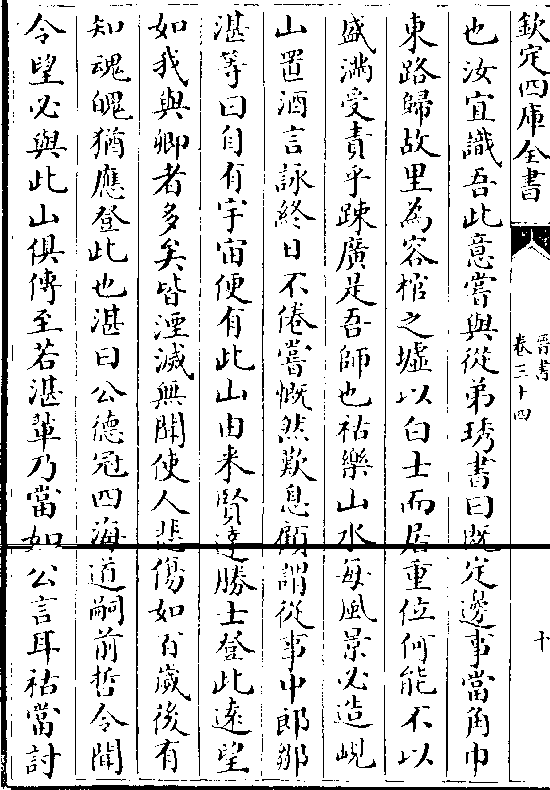 欽定四庫全書
晉書
卷三十四
十
也汝宜識吾此意嘗與從弟琇書曰既定邊事當角巾
東路歸故里為容棺之墟以白士而居重位何能不以
盛滿受責乎疎廣是吾師也祜樂山水每風景必造峴
山置酒言詠終日不倦嘗慨然歎息顧謂從事中郎鄒
湛等曰自有宇宙便有此山由来賢達勝士登此遠望
如我與卿者多矣皆湮滅無聞使人悲傷如百歲後有
知魂魄猶應登此也湛曰公德冠四海道嗣前哲令聞
令望必與此山俱傳至若湛輩乃當如公言耳祜當討